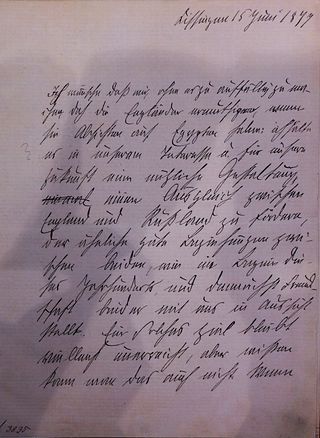 Kissingen 15 Juni 1877
Ich wünsche daß wir, ohne es zu auffällig zu ma-
chen doch die Engländer ermuthigen, wenn
sie Absichten auf Egypten haben: ich halte
es in unserem Interesse u für unsere
Zukunft eine nützliche Gestaltung,
einen Ausgleich zwischen
England und Rußland zu fördern
der ähnliche gute Beziehungen zwi-
schen beiden, wie im Beginn die-
ses Jahrhunderts, und demnächst Freund-
schaft beider mit uns in Aussicht
stellt. Ein solches Ziel bleibt
vielleicht unerreicht, aber wissen
kann man das auch nicht. Wenn